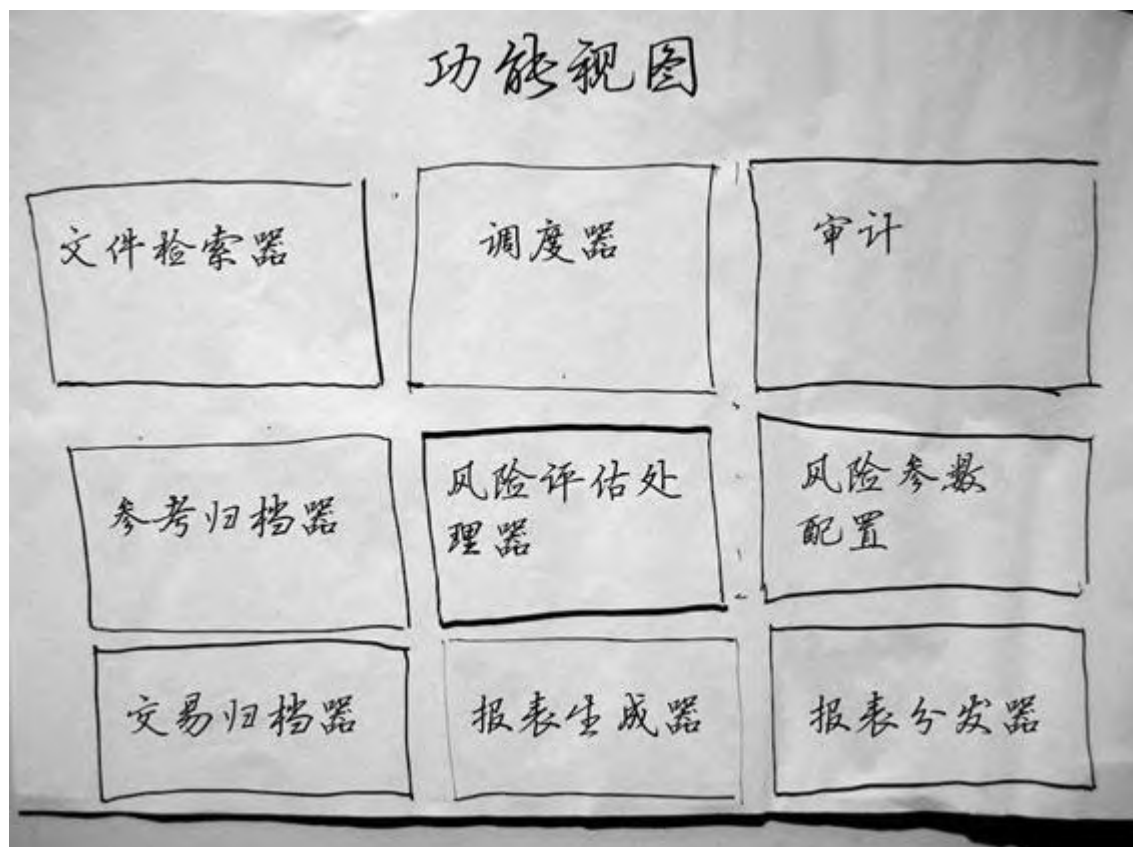 功能视图
文件检索器
调度器
审计
参考归档器
风险评估处
理器
风险参数
配置
交易归档器
报表生成器
报表分发器